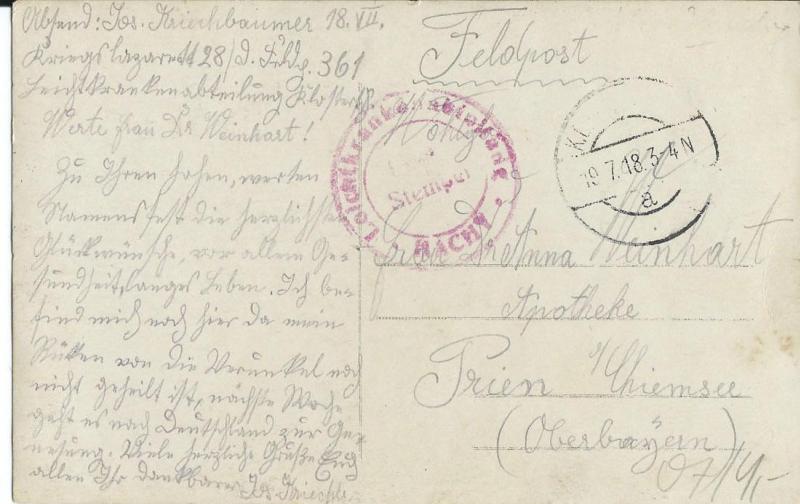 Absend: Jos. Kriechbaumer 18. VII.
Kriegslazarett 28/d. Feldp. 361
Leichtkrankenabteilung Kloster
Werte Frau Dr Weinhart!
Zu Ihren hohen, werten
Namensfest die herzlichsten
Glückwünsche, vor allem Ge-
sundheit, langes Leben. Ich be-
find mich noch hier da mein
Rücken von die Verunkel noch
nicht geheilt ist, nächste Woche
geht es nach Deutschland zur Ge-
nesung. Viele herzliche Grüße Euch
allen Ihr dankbarer Jos Kriechb.
Feldpost
Leichtkrankenabteilung
Stempel
19.7.18.3-4N
a
Wohlg.
Frau Dr Anna Weinhart
Apotheke
Prien a/Chiemsee
(Oberbayern)